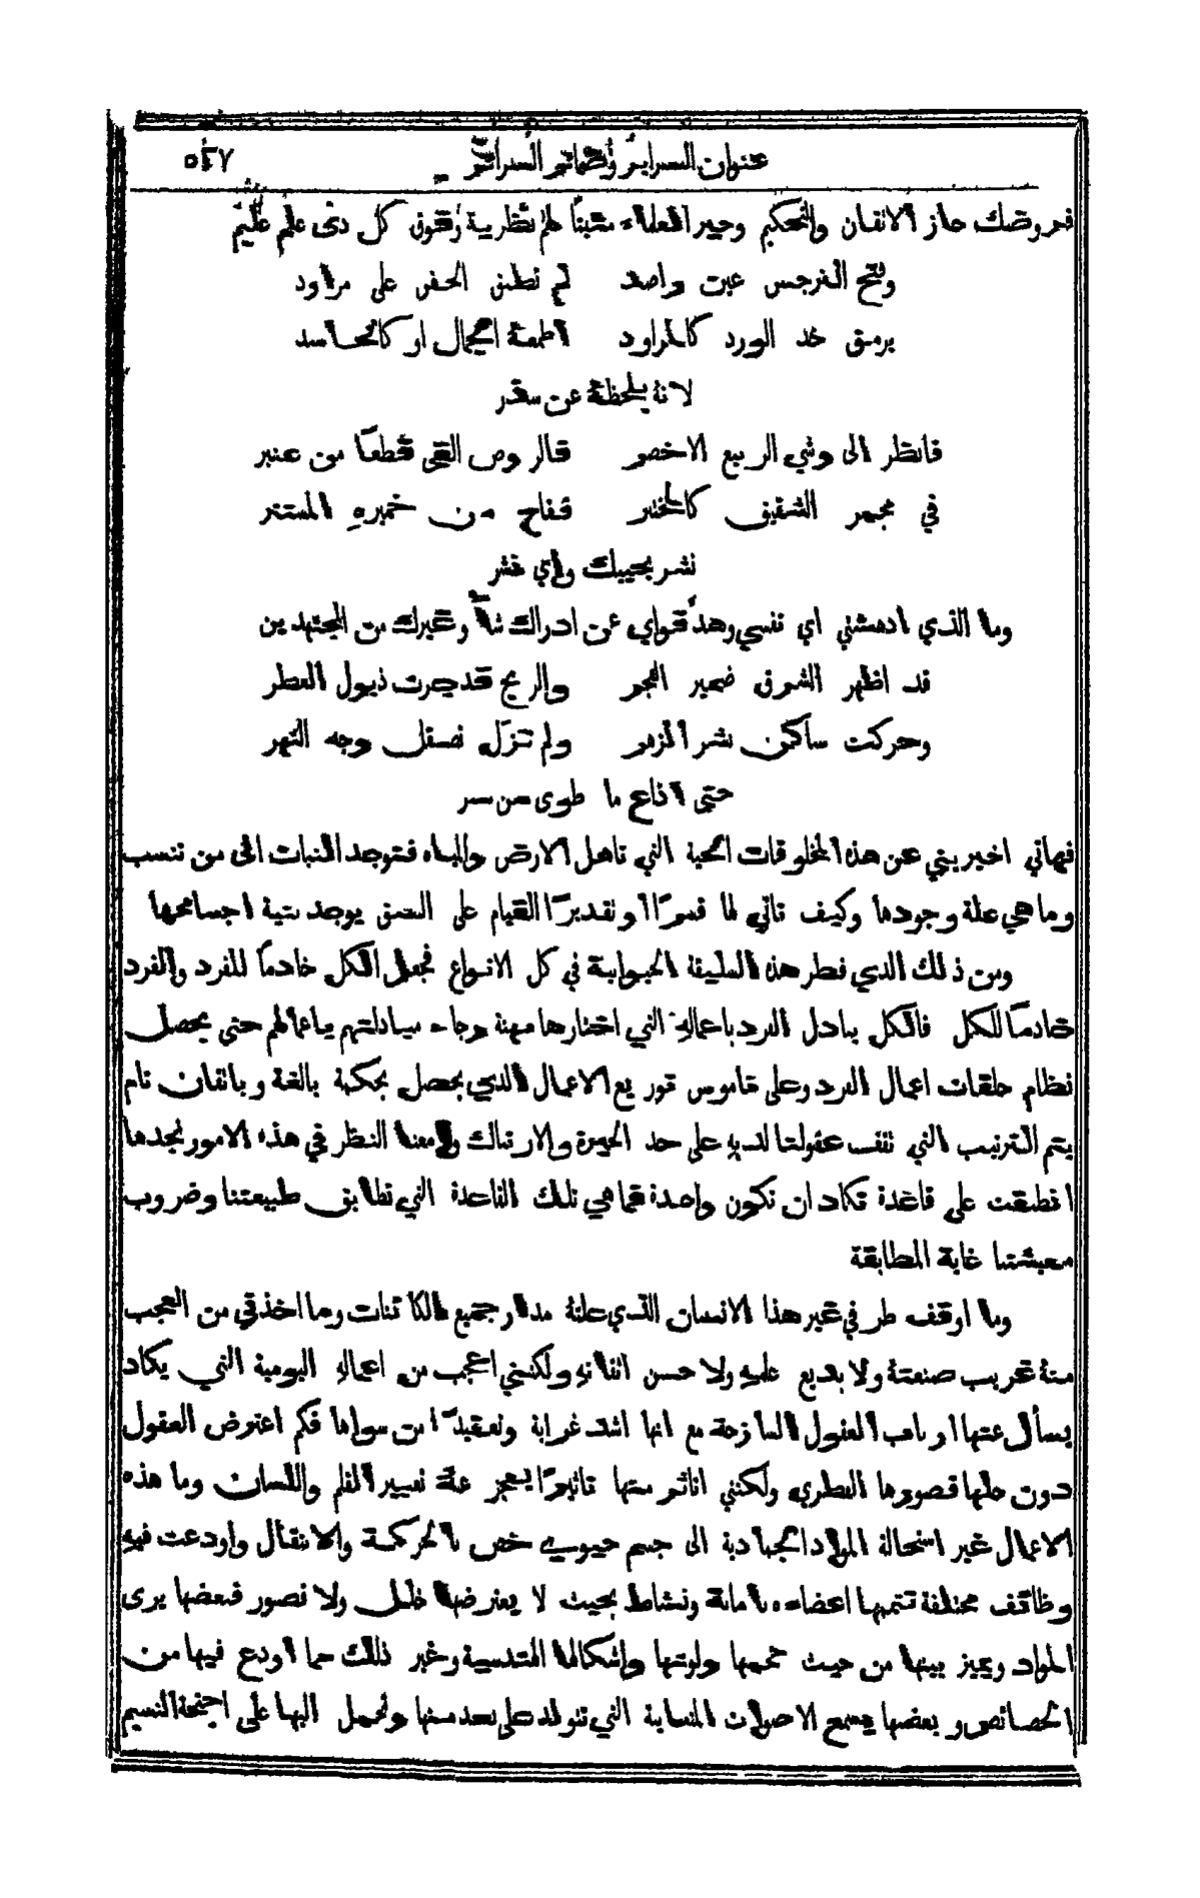 عنوان السراير ونظمات السراتر ٥٢٧
فروضك حاز الاتقان والتحكيم وحير العلماء مثبتًا لهم نظرية وفوق كل ذي علم عليم
وفتح النرجس عين راصد لم تطبق الجفن على مراود
يرمق خد الورد كالمراود اطمعه الجمال او كالحاسد
لانه يلحظه عن سقر
فانظر الى وشي الربيع الاخضر فالروض القى قطعًا من عنبر
في مجمر الشقيق كالمختبر ففاح من خميره المستتر
نشر يحييك واي نشر
وما الذي ادهشني اي نفسي وهد قواي عن ادراك وغيرك من المجتهدين
قد اظهر الشرق ضمير الفجر والريح قد جرت ذيول العطر
وحركت ساكن نشر الزهر ولم تزل تصقل وجه النهر
حتى اذاع ما طوى من سر
فهاتي اخبريني عن هذه المخلوقات الحية التي تاهل الارض والمياه فتوجد النبات الى من تنسب
وما هي علة وجودها وكيف تاتي لها قسرًا او تقديرًا القيام على النسق يوجد بنية اجسامها
ومن ذلك الذي فطر هذه السليقة الحيوانية في كل الانواع فجعل الكل خادمًا للفرد والفرد
خادمًا للكل فالكل يبادل الفرد باعماله التي اختارها مهنة رجاء مبادلتهم باعمالهم حتى يحصل
نظام حلقات اعمال الفرد وعلى قاموس توزيع الاعمال الذي يحصل بحكمة بالغة وباتقان تام
يتم الترتيب التي تقف عقولنا لديه على حد الحيرة والارتباك وامعنا النظر في هذه الامور نجدها
انطبقت على قاعدة تكاد ان تكون واحدة فما هي تلك القاعدة التي تطابق طبيعتنا وضروب
معيشتنا غاية المطابقة
وما اوقف طرفي غير هذا الانسان الذي علته مدار جميع الكائنات وما اخذني من العجب
منه غريب صنعته ولا بديع عليه ولا حسن اتقانه ولكنني اعجب من اعماله اليومية التي يكاد
يسأل عنها ارباب العقول السازجة مع انها اشد غرابة وتعقيدًا من سواها فكم اعترض العقول
دون حلها قصورها الفطري ولكنني اتاثر منها تاثيرًا يعجز عنه تعبير القلم واللسان وما هذه
الاعمال غير استحالة المواد الجمادية الى جسم حيوي خص بالحركة والانتقال واودعت فيه
وظائف مختلفة تتممها اعضاءه بامانة ونشاط بحيث لا يعترضها خلل ولا تصور فبعضها يرى
المواد ويميز بينها من حيث حجمها ولونها واشكالها الهندسية وغير ذلك مما اودع فيها من
الخصائص وبعضها يسمع الاصوات المتسابة التي تتولد على بعد منها وتحمل اليها على اجنحة النسيم